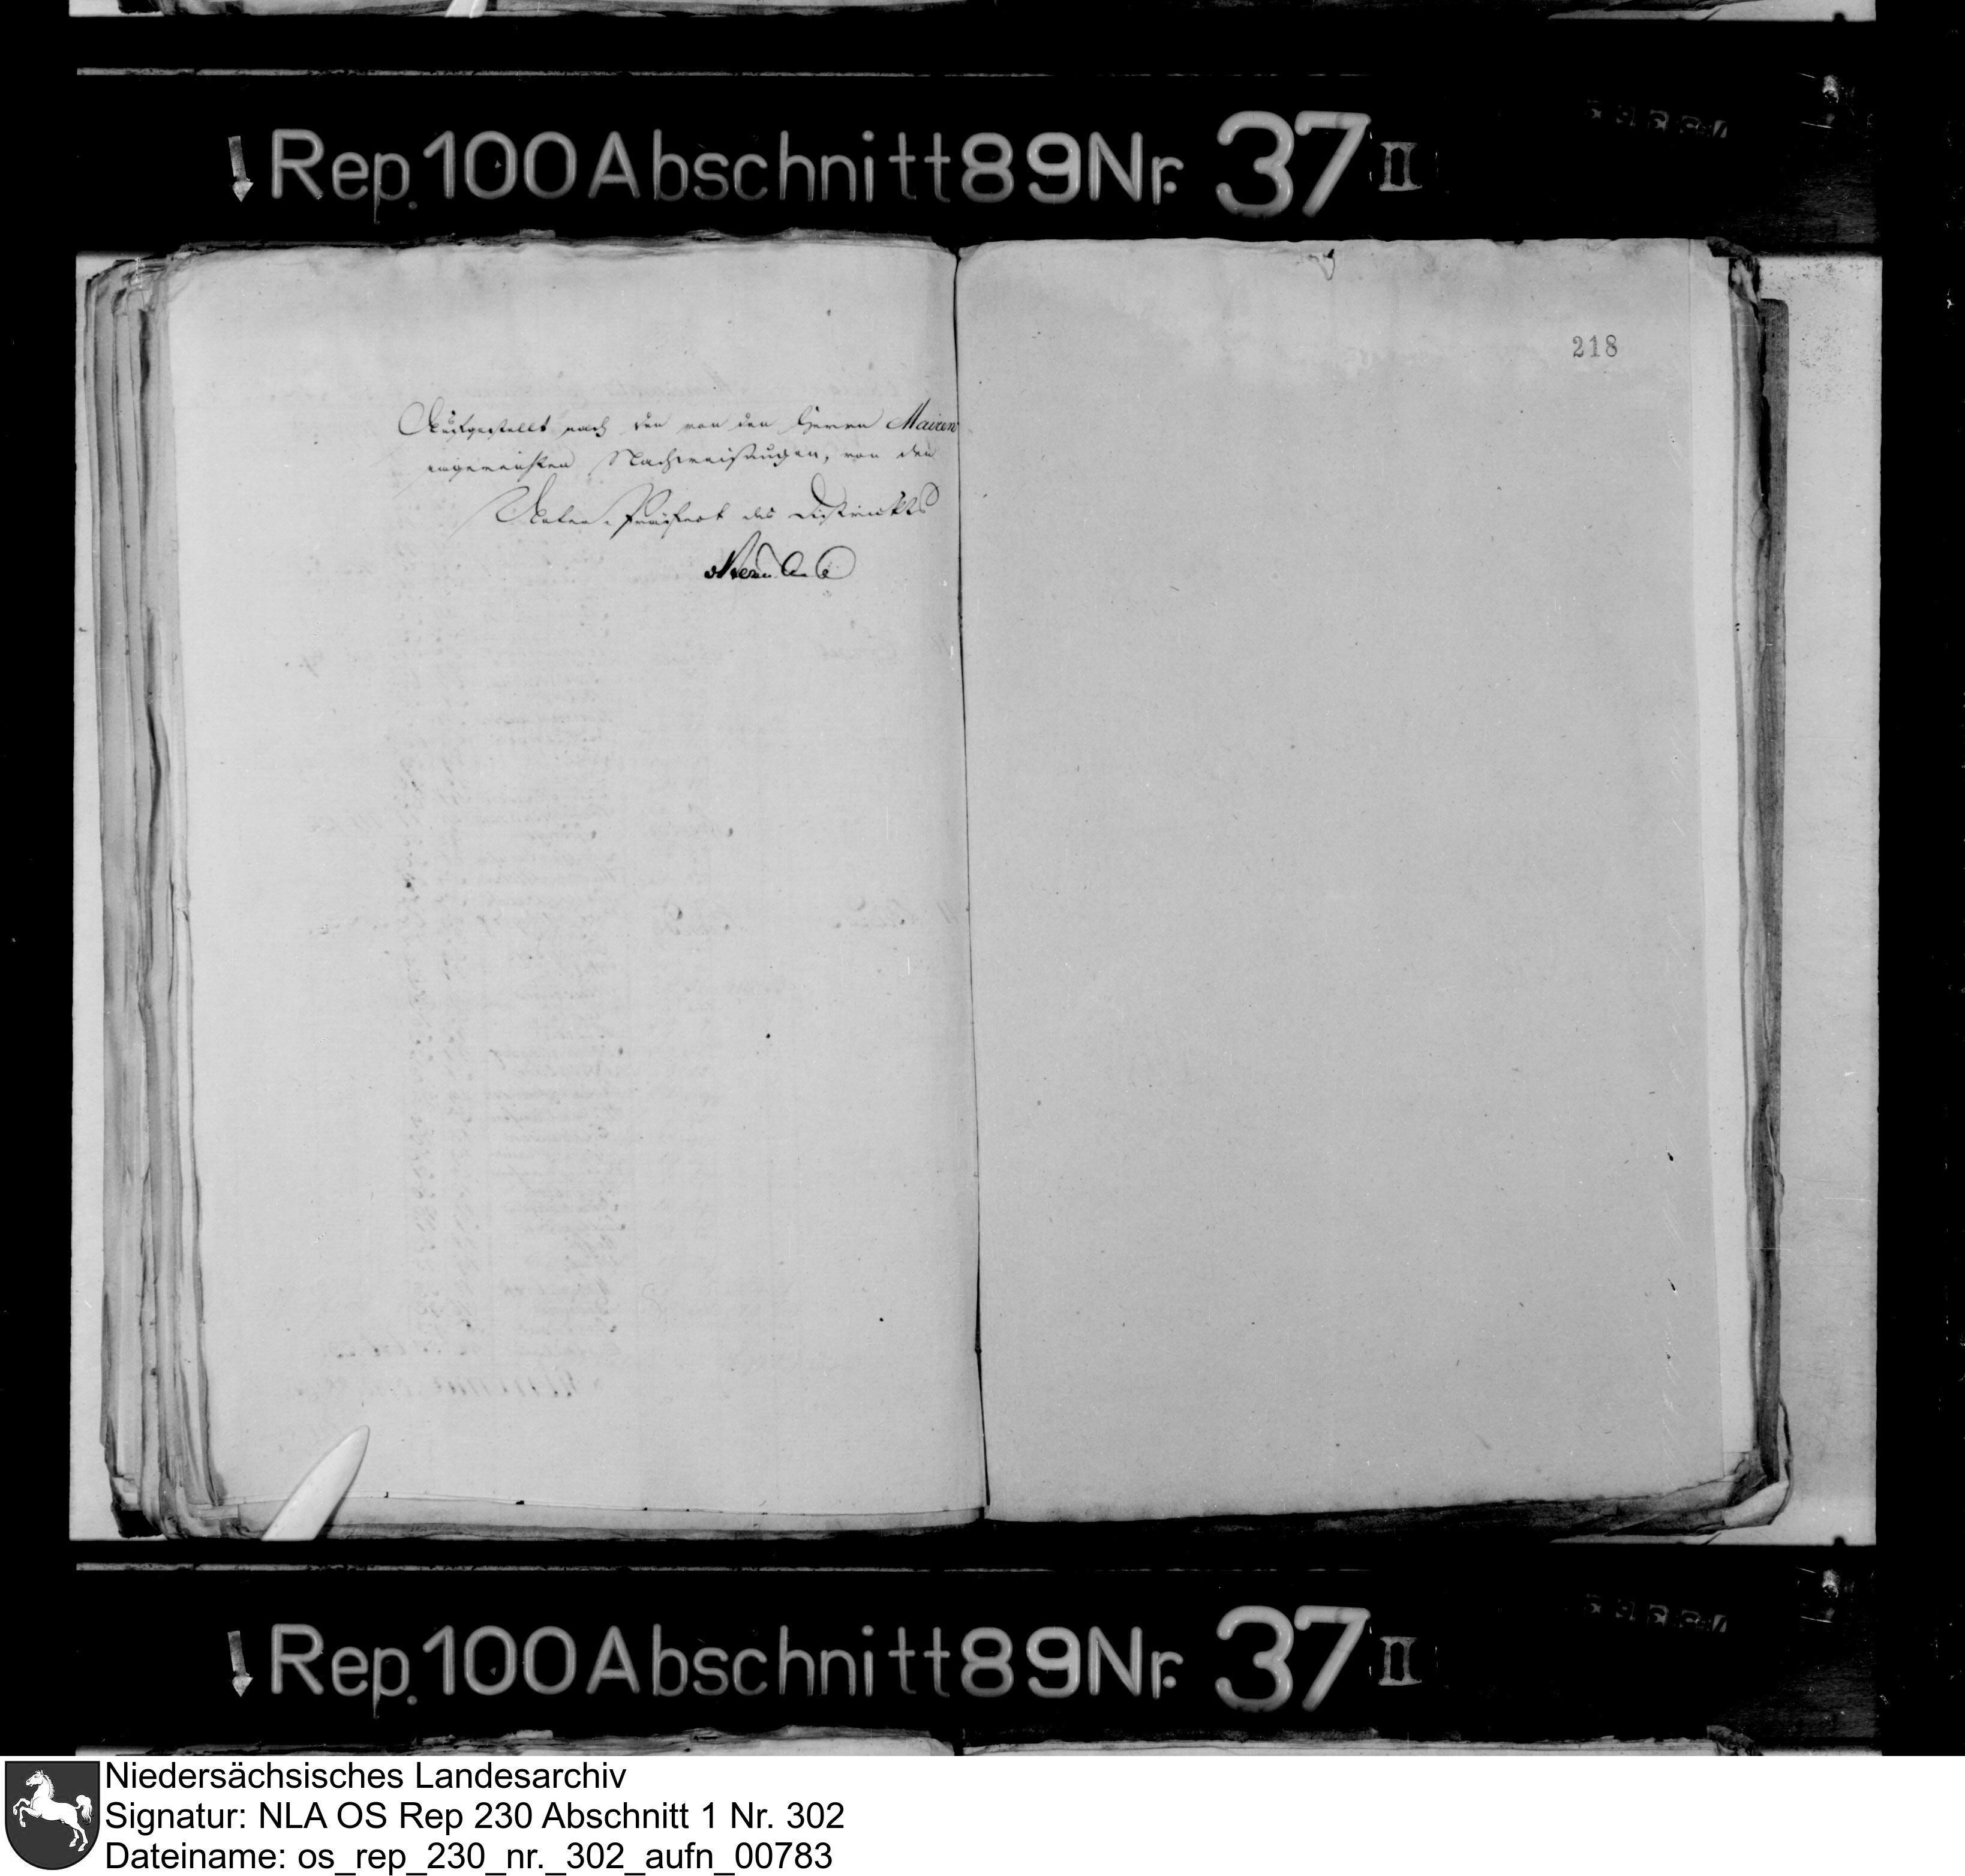 Rep. 100 Abschnitt 89 Nr. 37 II
218
Aufgestellt nach den von den Herrn Mairen
eingereichten Nachweisungen, von den
Unter-Präfect des Districkts
Rep. 100 Abschnitt 89 Nr. 37 II
Niedersächsisches Landesarchiv
Signatur: NLA OS Rep 230 Abschnitt 1 Nr. 302
Dateiname: os_rep_230_nr._302_aufn_00783